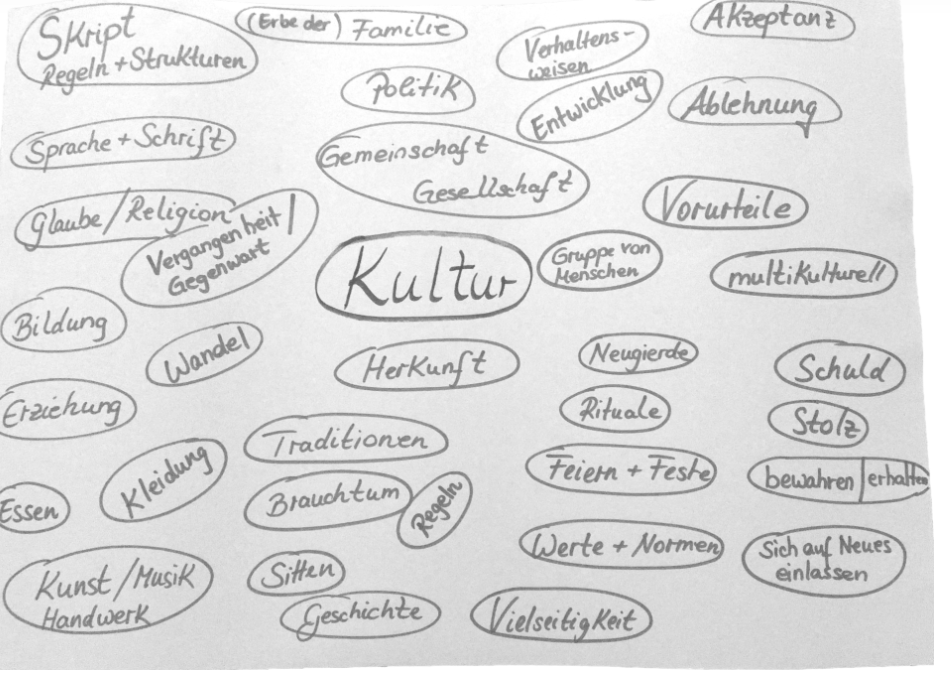 Skript
Regeln + Strukturen
(Erbe der) Familie
Verhaltens-
weisen
Akzeptanz
Politik
Entwicklung
Ablehnung
Sprache + Schrift
Gemeinschaft
Gesellschaft
Glaube / Religion
Vergangenheit /
Gegenwart
Vorurteile
Kultur
Gruppe von
Menschen
multikulturell
Bildung
Wandel
Herkunft
Neugierde
Schuld
Erziehung
Rituale
Stolz
Traditionen
Kleidung
Feiern + Feste
bewahren | erhalten
Essen
Brauchtum
Regeln
Werte + Normen
Sich auf Neues
einlassen
Kunst / Musik
Handwerk
Sitten
Geschichte
Vielseitigkeit